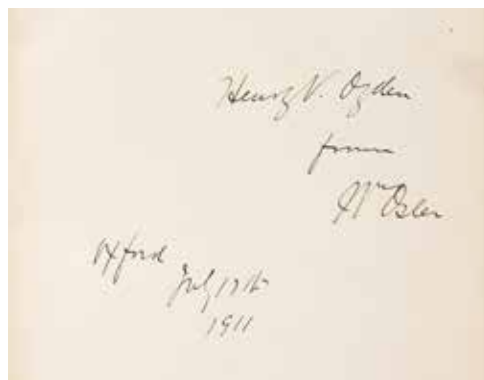 Henry V. Ogden
from
Wm Osler
Oxford
July 17th
1911